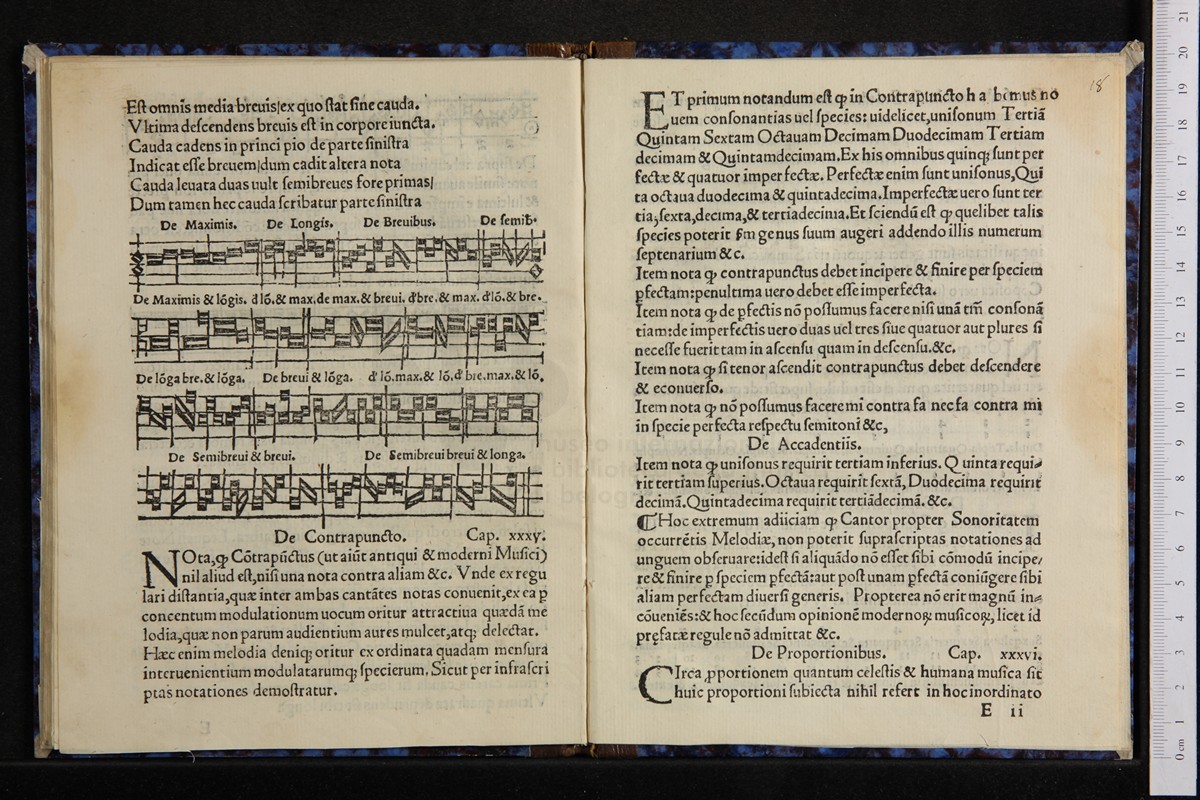 Est omnis media breuis|ex quo stat sine cauda.
Vltima descendens breuis est in corpore iuncta.
Cauda cadens in princi pio de parte sinistra
Indicat esse breuem|dum cadit altera nota
Cauda leuata duas uult semibreues fore primas|
Dum tamen hec cauda scribatur parte sinistra
De Maximis. De Longis. De Breuibus. De semib̄.
De Maximis & lōgis. d' lō. & max. de max. & breui. d' bre. & max. d' lō. & bre.
De lōga bre. & lōga. De breui & lōga. d' lō. max. & lō. d' bre. max. & lō.
De Semibreui & breui. De Semibreui breui & longa.
De Contrapuncto. Cap. xxxv.
NOta, ꝙ Cōtrapūctus (ut aiūt antiqui & moderni Musici)
nil aliud est, nisi una nota contra aliam &c. Vnde ex regu
lari distantia, quæ inter ambas cantātes notas conuenit, ex ea p
concentum modulationum uocum oritur attractiua quædā me
lodia, quæ non parum audientium aures mulcet, atq; delectat.
Hæc enim melodia deniq; oritur ex ordinata quadam mensura
interuenientium modulatarumq; specierum. Sicut per infrascri
ptas notationes demostratur.
18
ET primum notandum est ꝙ in Contrapuncto h a bemus no
uem consonantias uel species: uidelicet, unisonum Tertiā
Quintam Sextam Octauam Decimam Duodecimam Tertiam
decimam & Quintamdecimam. Ex his omnibus quinq; sunt per
fectæ & quatuor imperfectæ. Perfectæ enim sunt unisonus, Qui
ta octaua duodecima & quintadecima. Imperfectæ uero sunt ter
tia, sexta, decima, & tertiadecima. Et sciendū est ꝙ quelibet talis
species poterit ſm genus suum augeri addendo illis numerum
septenarium &c.
Item nota ꝙ contrapunctus debet incipere & finire per speciem
pfectam: penultima uero debet esse imperfecta.
Item nota ꝙ de pfectis nō possumus facere nisi unā tm̄ consonā
tiam: de imperfectis uero duas uel tres siue quatuor aut plures si
necesse fuerit tam in ascensu quam in descensu. &c.
Item nota ꝙ si tenor ascendit contrapunctus debet descendere
& econuerso.
Item nota ꝙ nō possumus facere mi contra fa nec fa contra mi
in specie perfecta respectu semitoni &c,
De Accadentiis.
Item nota ꝙ unisonus requirit tertiam inferius. Q uinta requi-
rit tertiam superius. Octaua requirit sextā, Duodecima requirit
decimā. Quintadecima requirit tertiādecimā. &c.
¶Hoc extremum adiiciam ꝙ Cantor propter Sonoritatem
occurrētis Melodiæ, non poterit suprascriptas notationes ad
unguem obseruare: idest si aliquādo nō esset sibi cōmodū incipe/
re & finire p speciem pfectā: aut post unam pfectā coniūgere sibi
aliam perfectam diuersi generis. Propterea nō erit magnū in-
cōueniēs: & hoc secūdum opinionē modernoꝝ musicoꝝ, licet id
pręfatæ regule nō admittat &c.
De Proportionibus. Cap. xxxvi.
CIrca ꝓportionem quantum celestis & humana musica sit
huic proportioni subiecta nihil refert in hoc inordinato
E ii